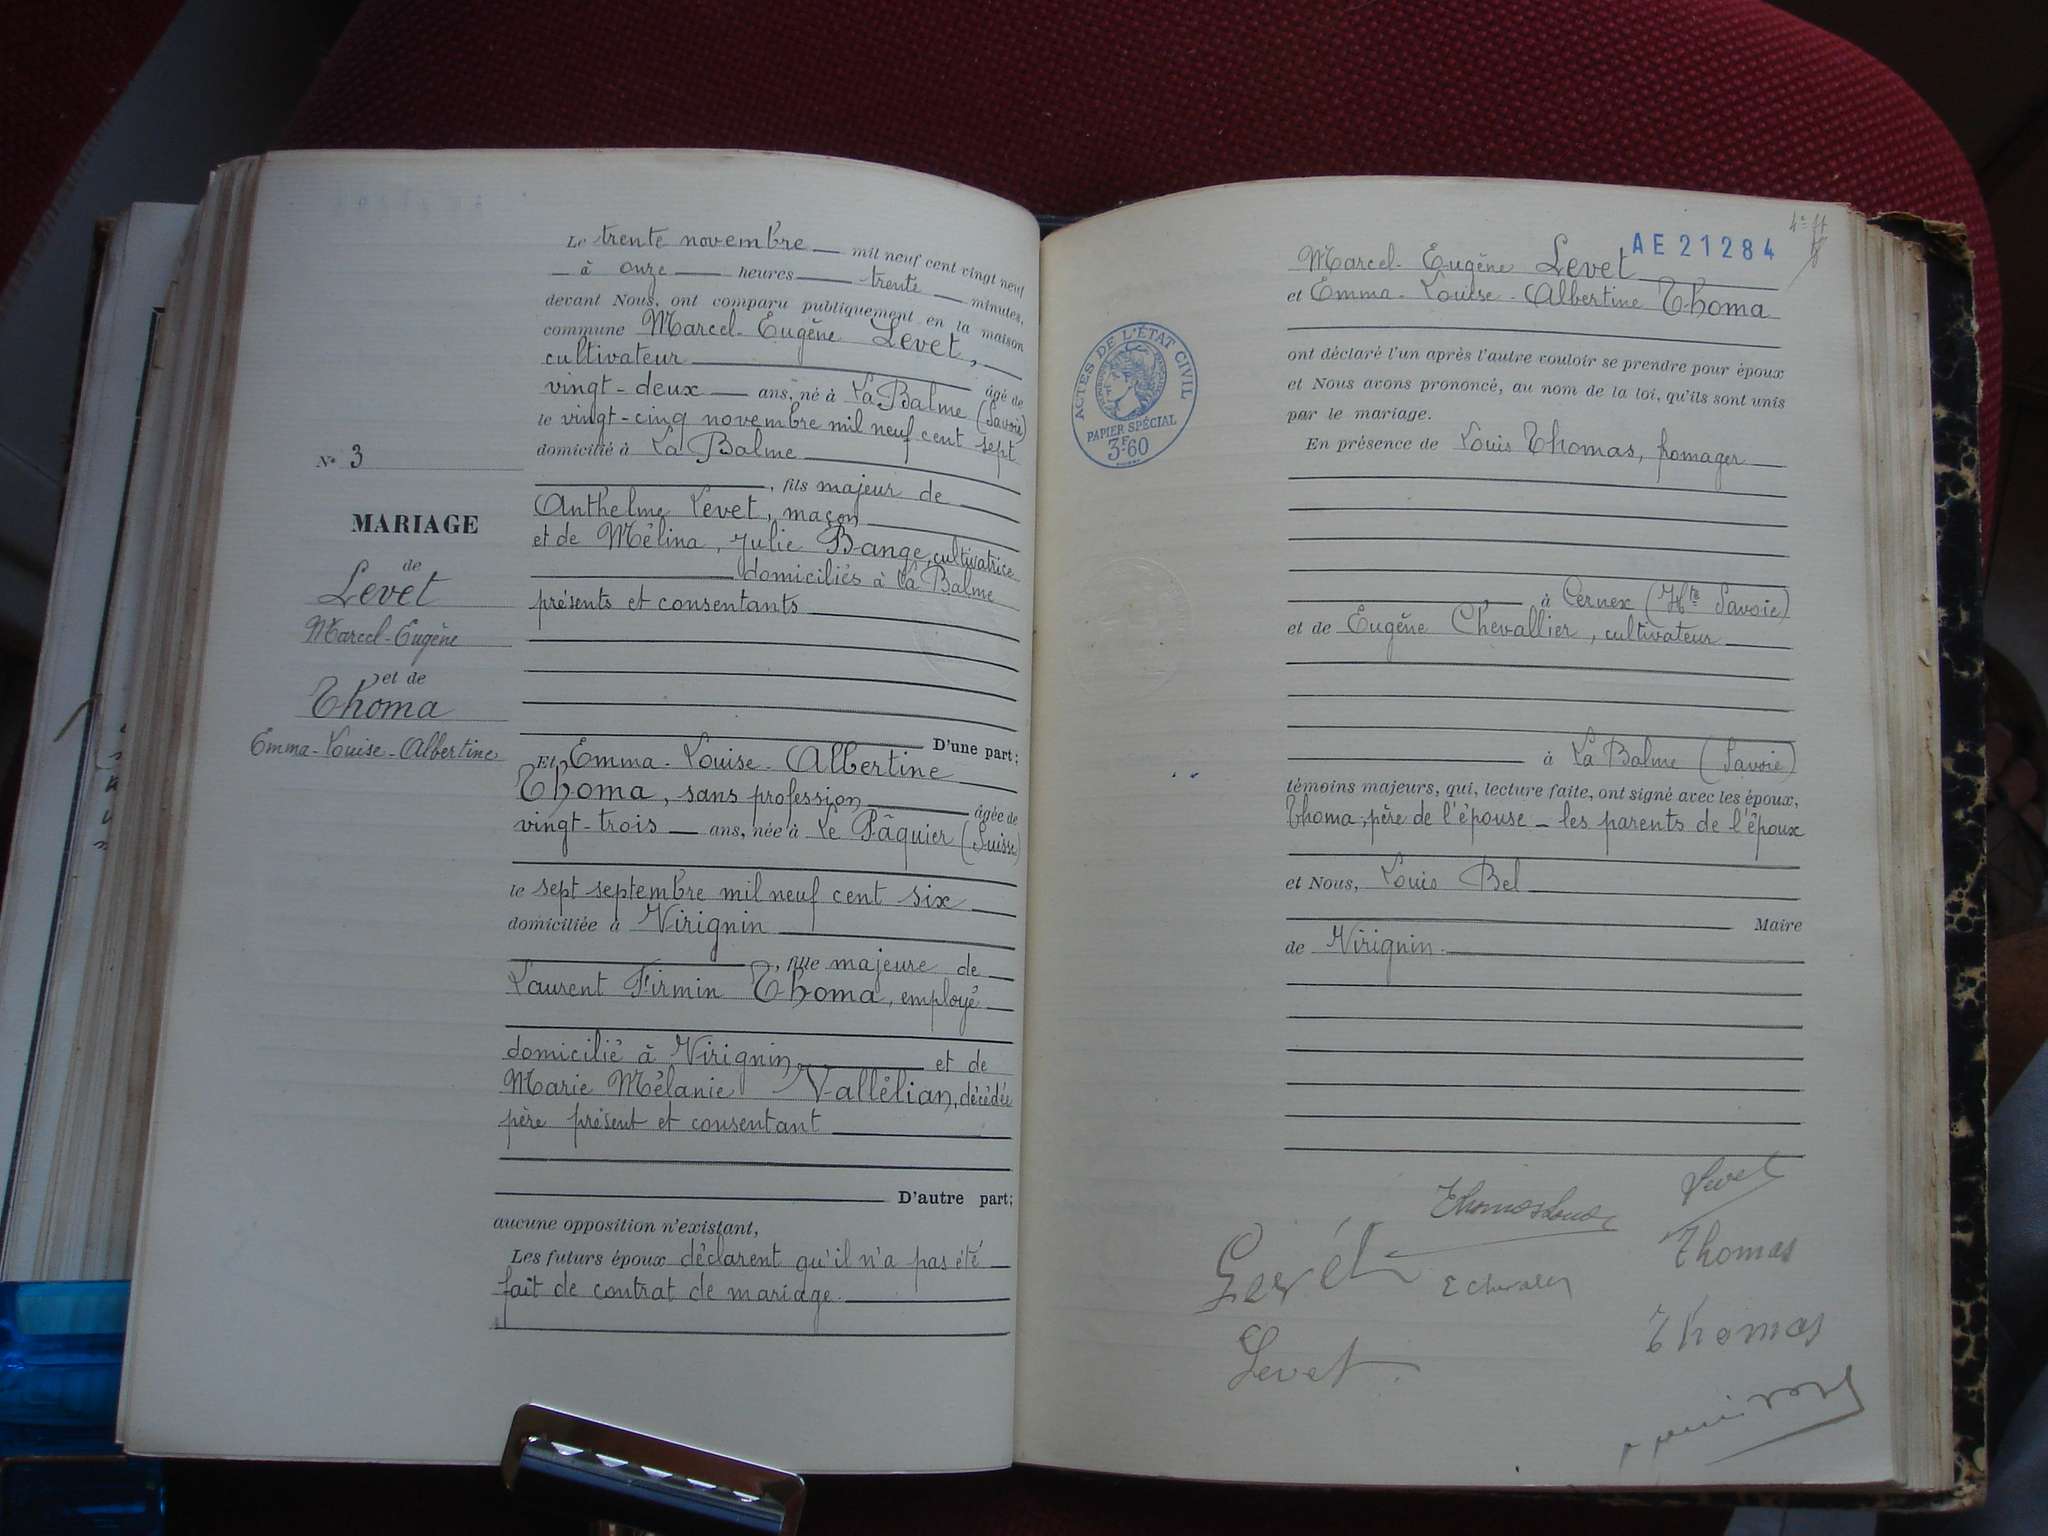 N° 3
MARIAGE
de
Levet
Marcel-Eugène
et de
Thoma
Emma-Louise-Albertine
Le trente novembre mil neuf cent vingt neuf
à onze heures trente minutes,
devant Nous, ont comparu publiquement en la maison
commune Marcel-Eugène Levet,
cultivateur âgé de
vingt-deux ans, né à La Balme (Savoie)
le vingt-cinq novembre mil neuf cent sept
domicilié à La Balme
, fils majeur de
Anthelme Levet, maçon
et de Mélina, Julie Bange, cultivatrice
domiciliés à La Balme
présents et consentants
D'une part;
Et Emma-Louise-Albertine
Thoma, sans profession âgée de
vingt-trois ans, née à Le Pâquier (Suisse)
le sept septembre mil neuf cent six
domiciliée à Virignin
, fille majeure de
Laurent Firmin Thoma, employé
domicilié à Virignin et de
Marie Mélanie Vallélian, décédée
père présent et consentant
D'autre part;
aucune opposition n'existant,
Les futurs époux déclarent qu'il n'a pas été
fait de contrat de mariage.
AE 21284
Marcel-Eugène Levet
et Emma-Louise-Albertine Thoma
ACTES DE L'ÉTAT CIVIL
PAPIER SPÉCIAL
3F60
ont déclaré l'un après l'autre vouloir se prendre pour époux
et Nous avons prononcé, au nom de la loi, qu'ils sont unis
par le mariage.
En présence de Louis Thomas, fromager
à Cernex (Hte Savoie)
et de Eugène Chevallier, cultivateur
à La Balme (Savoie)
témoins majeurs, qui, lecture faite, ont signé avec les époux,
Thoma, père de l'épouse - les parents de l'époux
et Nous, Louis Bel
Maire
de Virignin.
Levet
Thomas Louis
Thomas
Levet
E Chevalier
Thomas
Levet